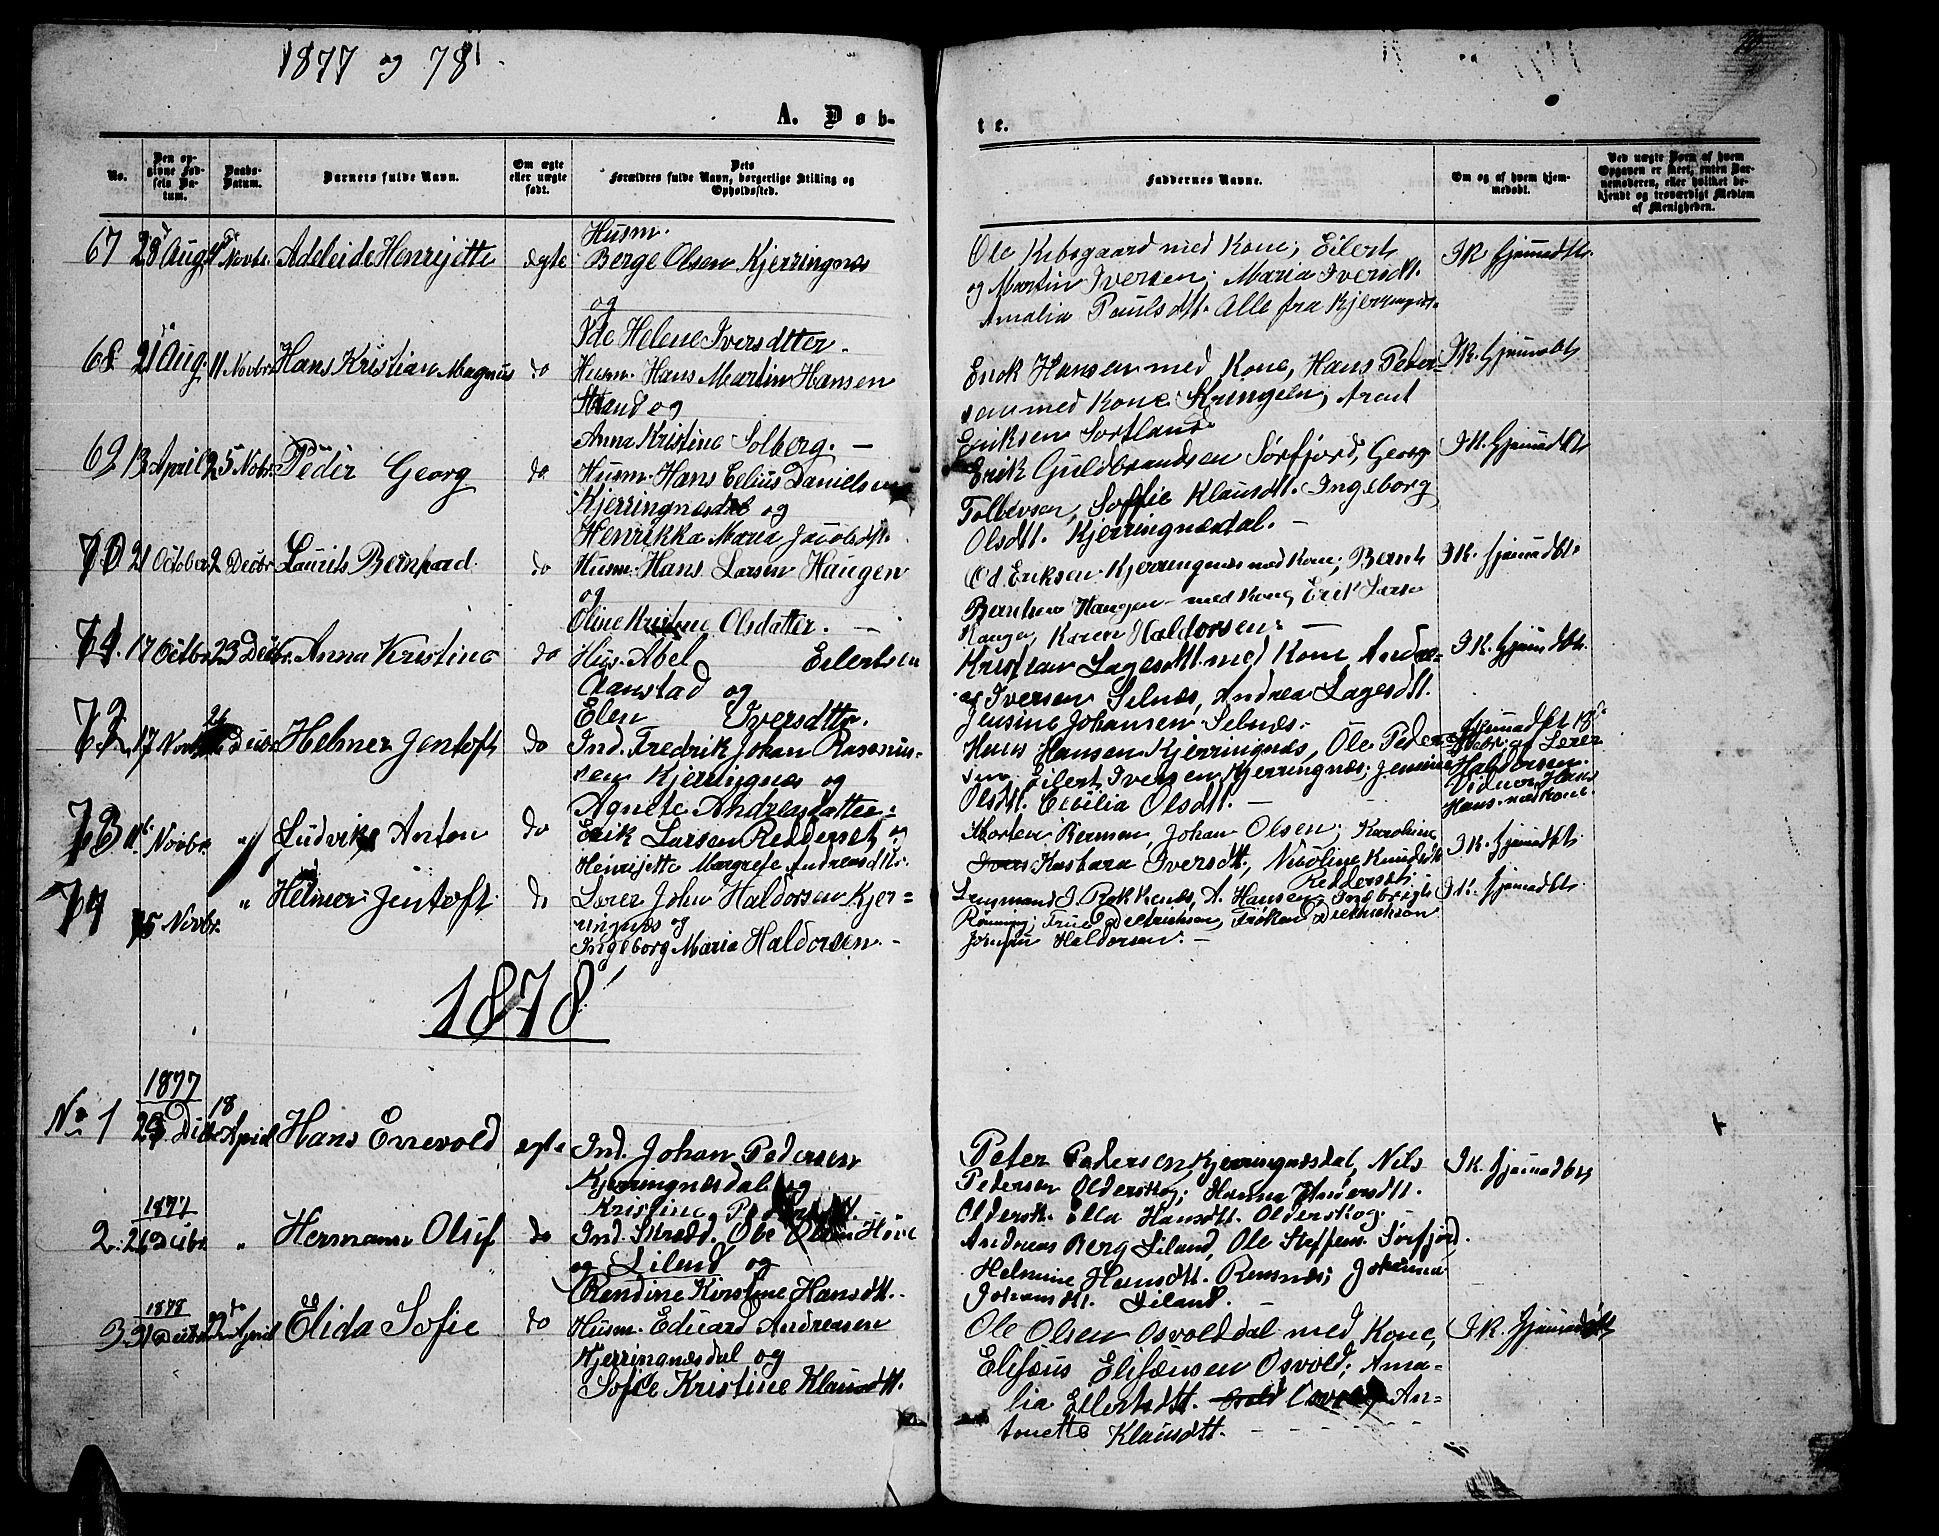 1877 og 78
A. Døb-
te.
No.
Den op-
givne Fød-
sels Da-
tum.
Daabs-
Datum.
Barnets fulde Navn.
Om ægte
eller uægte
født.
Dets
Forældres fulde Navn, borgerlige Stilling og
Opholdssted.
Faddernes Navne.
Om og af hvem hjem-
medøbt.
Ved uægte Børn af hvem
Opgaven er skeet, enten Bar-
nemoderen, eller hvilket be-
kjendt og troværdigt Medlem
af Menigheden.
67 28 Aug. Novbr. Adeleide Henrijette ægte
Husm.
Berge Olsen Kjerringnæs
og
Ide Helene Iversdtter.
Ole Kibsgaard med Kone; Eilert
og Martin Iversen; Maria Iversdt.
Amalia Paulsdt. Alle fra
IK. hjemdbt.
68 21 Aug. 11 Novbr. Hans Kristian Magnus do
Husm. Hans Martin Hansen
Strand og
Anna Kristine Solberg. —
Erik Hansen med Kone, Hans Peter-
sen med Kone Kringeln, Arnt
Eriksen Sortland
IK. hjemdbt
69 13 April 25 Novbr. Peder Georg do
Husm. Hans Celius Danielsen
Kjerringnæsdal og
Henrikka Maria Jacobsdt.
Erik Guldbrandsen Sørfjord, Georg
Tollevsen, Soffie Klausdt. Ingeborg
Olsdt. Kjerringnæsdal. —
IK. hjemdbt
70 21 October 2 Decbr. Laurits Bernhard do
Husm. Hans Larsen Haugen
og
Oline Kristine Olsdatter. —
Od. Eriksen Kjerringnæs med Kone; Bernt
Berntsen Haugen med Kone, Erik Larsen
Haugen, Karen Haldorsen. —
IK. hjemdbt.
71. 17 Octbr. 23 Decbr. Anna Kristine do
Hus. Abel Eilertsen
Aanstad og
Elen Iversdttr.
Kristian Lagesdt. med Kone Andre-
as Iversen Selnæs, Andrea Lagesdt.
Jensine Johansen Selnæs.
IK. hjemdbt.
72 17 Novbr. 26 Decbr. Helmer Jentoft do
Ind. Fredrik Johan Rasmus-
sen Kjerringnæs og
Agnete Andreasdatter
Hans Hansen Kjerringnæs, Ole Peder-
sen, Eilert Iversen Kjerringnæs; Jensine
Olsdt. Cecilia Olsdt. —
hjemdøbt 19de
Decbr. af Lærer
Haldorsen.
Vidner Hans
Hans. med Kone.
73 11te Novbr. " Ludvik Anton do
Erik Larsen Reddersæt og
Heinrijette Margrete Andreasdtr.
Morten Benson, Johan Olsen; Karoline
Kasbara Iversdt, Nicoline Knudsdt
Reddersæt
IK. hjemdbt.
74 15 Novbr. " Helmer Jentoft do
Lærer John Haldorsen Kjer-
ringnæs og
Ingeborg Maria Haldorsen. —
Lensmand I. Rokkenæs, A. Hansen, Ingbrigt
Rønning; Frue Dietrichsen, Frøken Dietrichson
Haldorsen. —
IK. hjemdbt.
1878
1877
No 1 29 Decbr. 18 April Hans Enevold ægte
Ind. Johan Pedersen
Kjerringnæsdal og
Kristine
Peter Pedersen Kjerringnæsdal, Nils
Pedersen Olderskog; Hanna Andersdt.
Oldersk. Ella Hansdt. Olderskog. —
IK. hjemdbt
1877
2. 26 Decbr. " Hermann Oluf do
Ind. Skrædd. Ole Olsen
og Liland og
Rendine Kirstine Hansdt.
Andreas Berg Liland, Ole Steffens. Sørfjord.
Helmine Hansdt. Rensnæs; Johanna
Johansdt. Liland. —
1878
3 31 Decbr. April Elida Sofie do
Husm. Eduard Andreasen
Kjerringnæsdal og
Sofie Kristine Klausdt.
Ole Olsen Osvolddal med Kone,
Elisæus Elisæusen Osvold; Ama-
lia Eilertsdt. Osvold, An-
tonette Klausdt. - - -
IK. hjemdbt